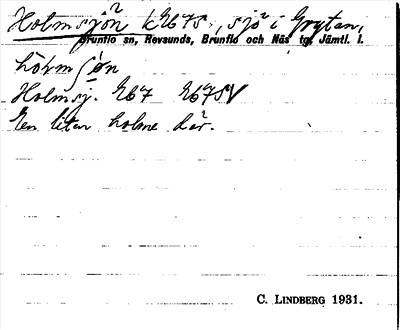 Holmsjön kEK7S., sjö i Grytan,
Brunflo sn, Revsunds, Brunflo och Näs tg, Jämtl. l.
hòʟmʃøn
Holmsj. EK7 EK7SV
En liten holme där.
C. LINDBERG 1931.